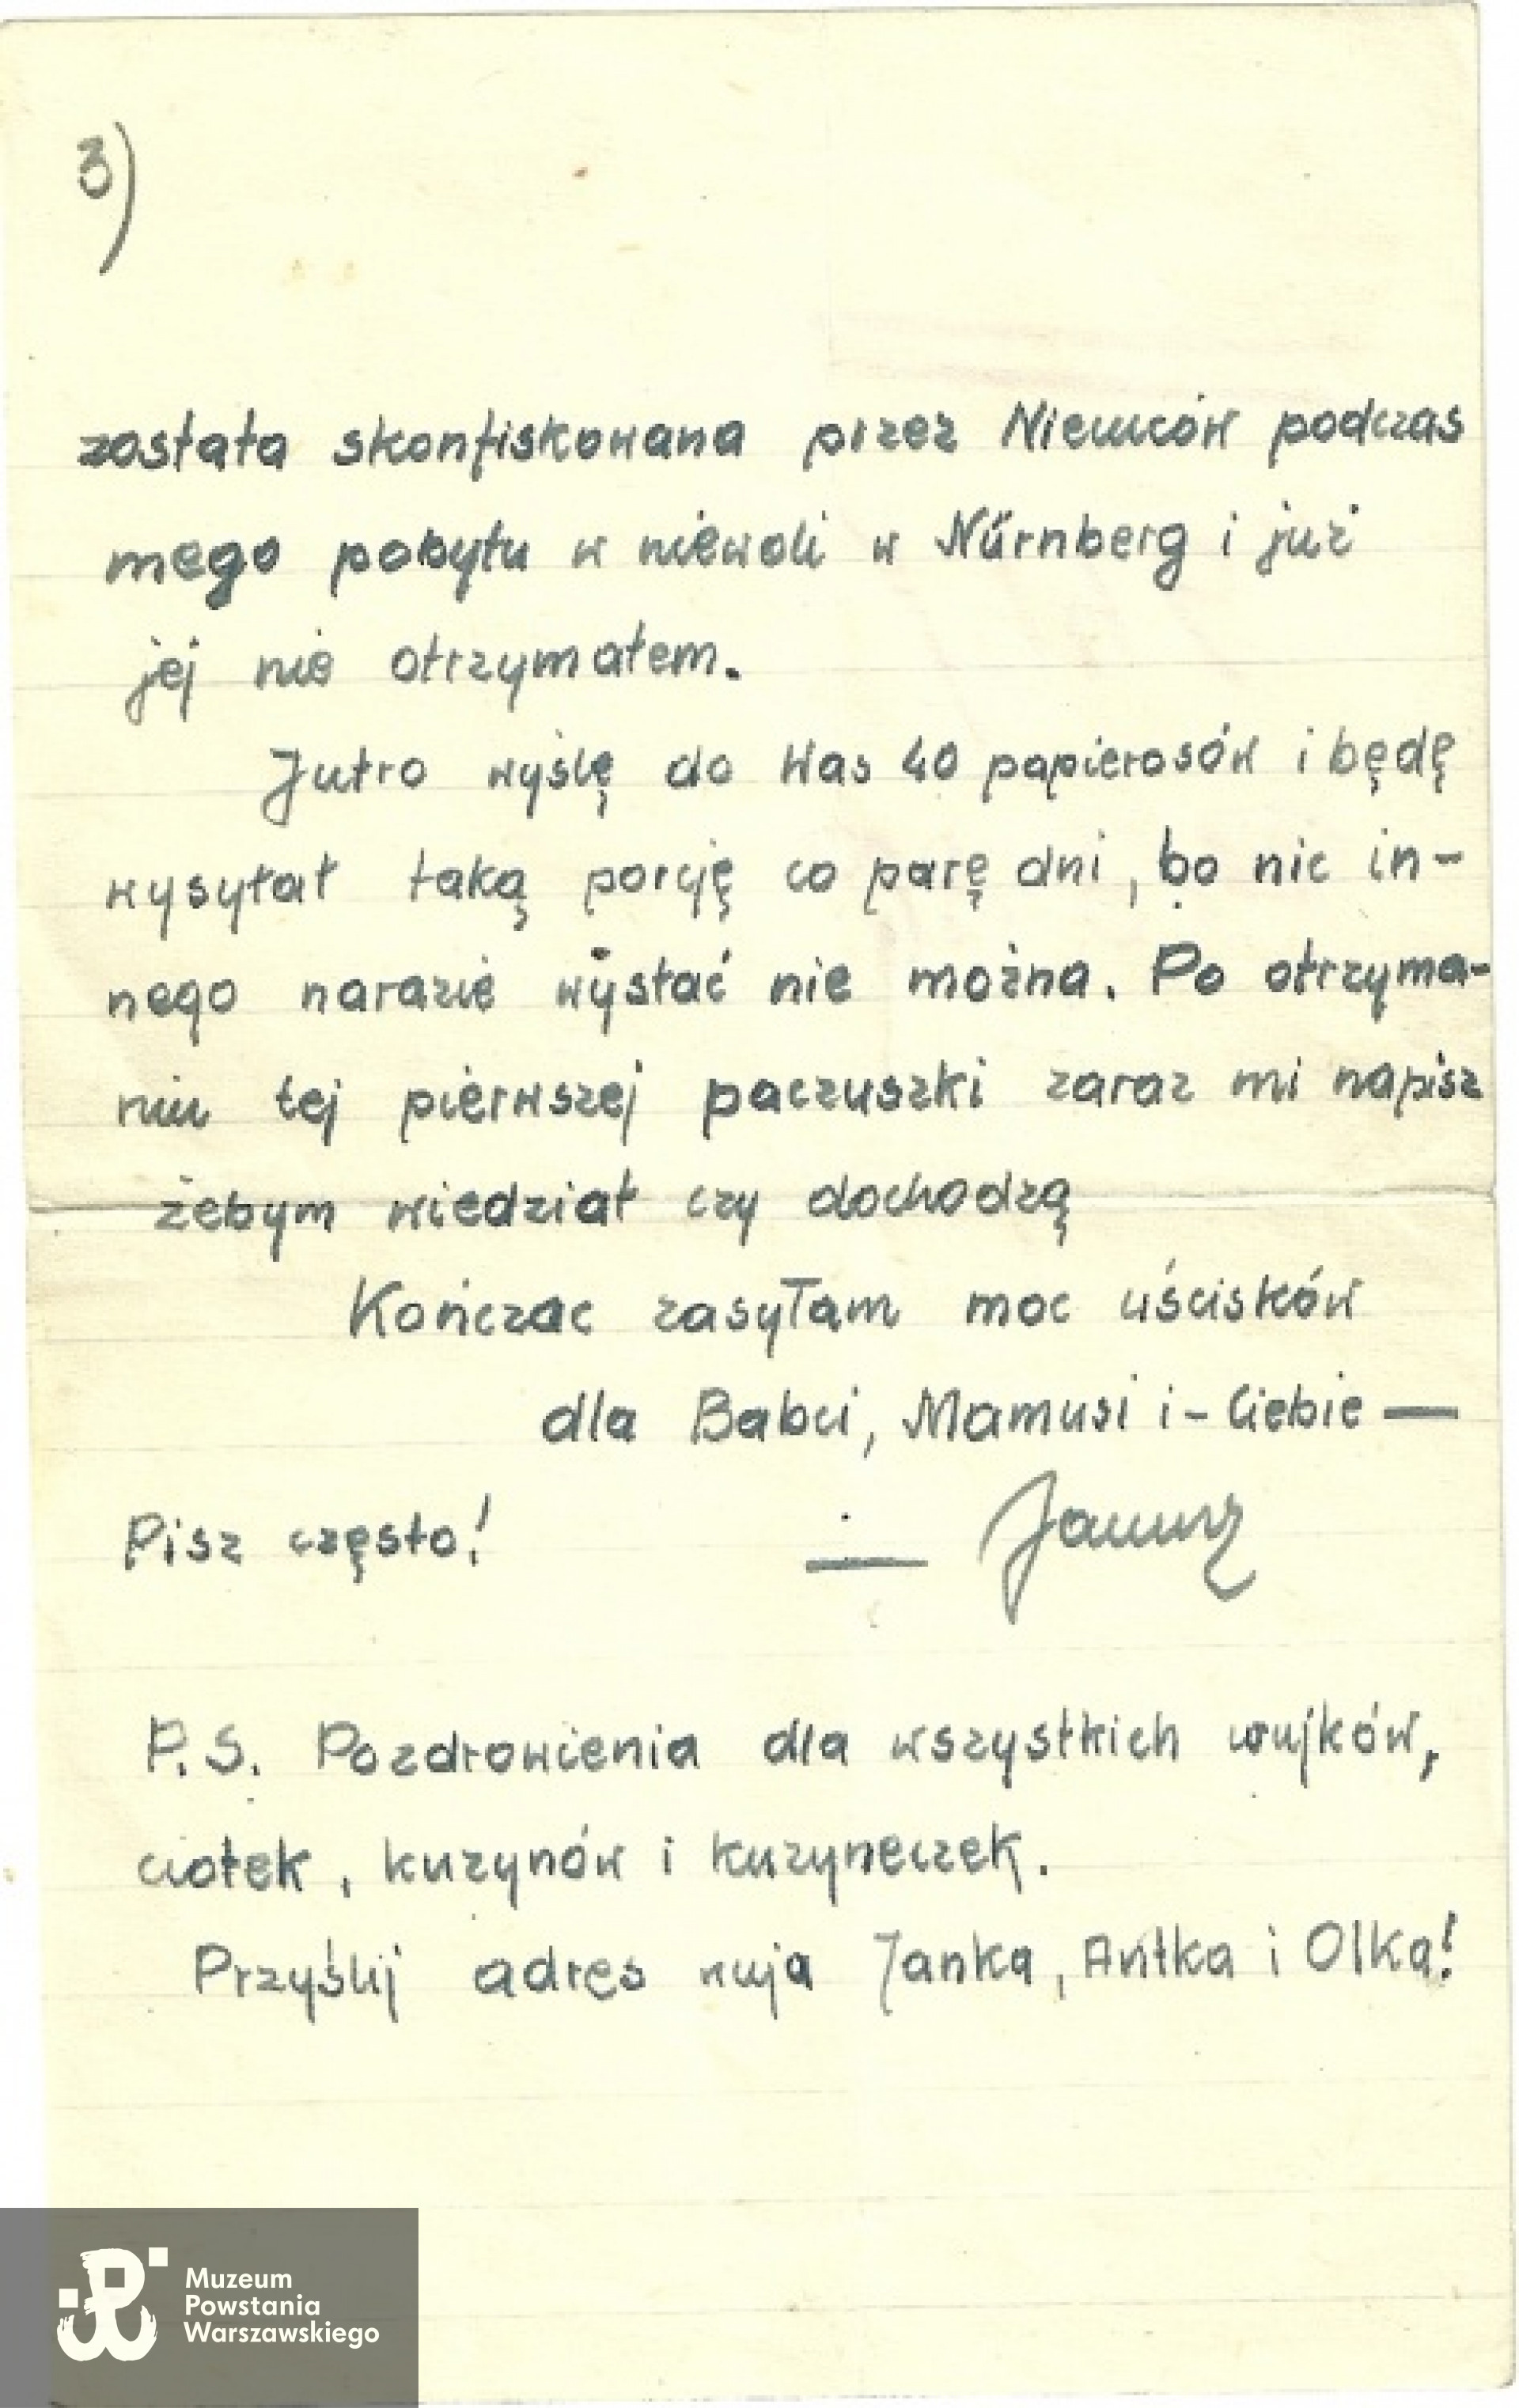 3)
została skonfiskowana przez Niemców podczas
mego pobytu w niewoli w Nürnberg i już
jej nie otrzymałem.
Jutro wyślę do Was 40 papierosów i będę
wysyłał taką porcję co parę dni, bo nic in-
nego narazie wysłać nie można. Po otrzyma-
niu tej pierwszej paczuszki zaraz mi napisz
żebym wiedział czy dochodzą
Kończąc zasyłam moc uścisków
dla Babci, Mamusi i - Ciebie —
Pisz często! — Janusz
P.S. Pozdrowienia dla wszystkich wujków,
ciotek, kuzynów i kuzyneczek.
Przyślij adres wuja Janka, Antka i Olka!
Muzeum
Powstania
Warszawskiego